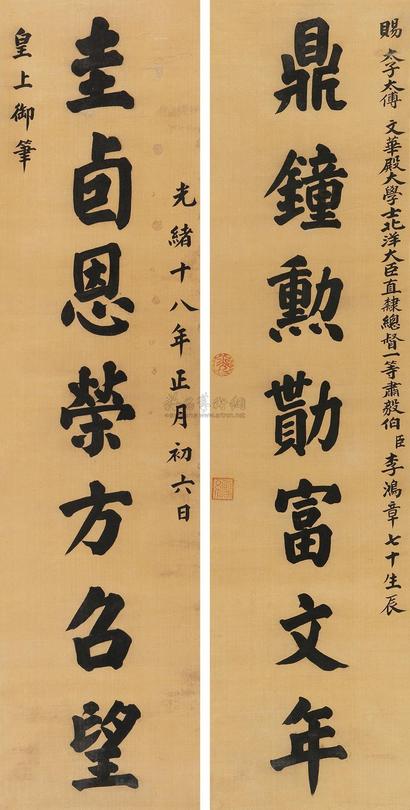 賜太子太傅文華殿大學士北洋大臣直隸總督一等肅毅伯臣李鴻章七十生辰
鼎鐘勳勩富文年
光緒十八年正月初六日
圭卣恩榮方召望
皇上御筆